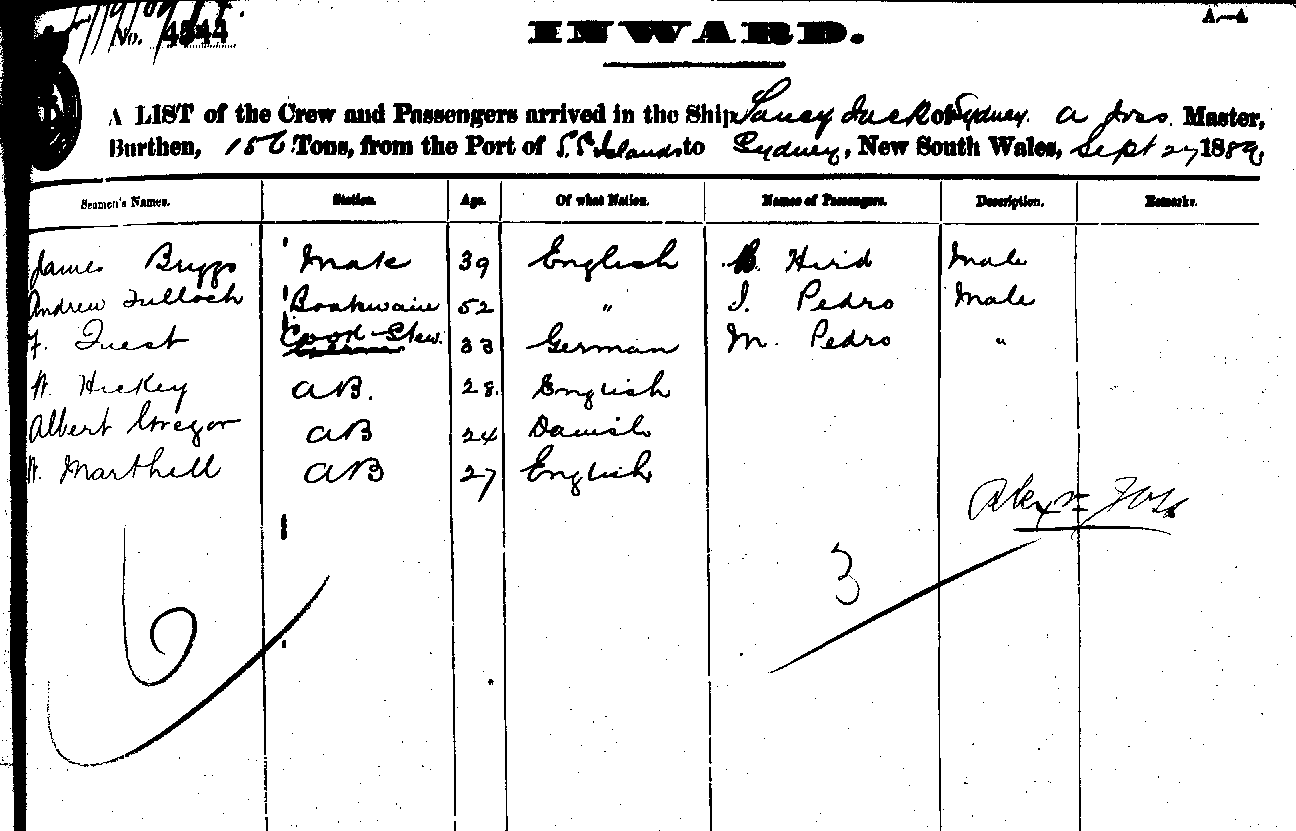 No. 4544
INWARD.
A—A
A LIST of the Crew and Passengers arrived in the Ship Saucy Jack of Sydney. A Joss. Master,
Burthen, 156 Tons, from the Port of S.S. Islands to Sydney, New South Wales, Sept 27 1889
Seamen's Names. Station. Age. Of what Nation. Names of Passengers. Description. Remarks.
James Briggs Mate 39 English B. Hird Male
Andrew Tulloch Boatswain 52 " I. Pedro Male
F. Quest Cook-Stew. 33 German M. Pedro "
W. Hickey AB. 28. English
Albert Gregor AB 24 Danish
W. Marthell AB 27 English
Alexr Joss
6
3